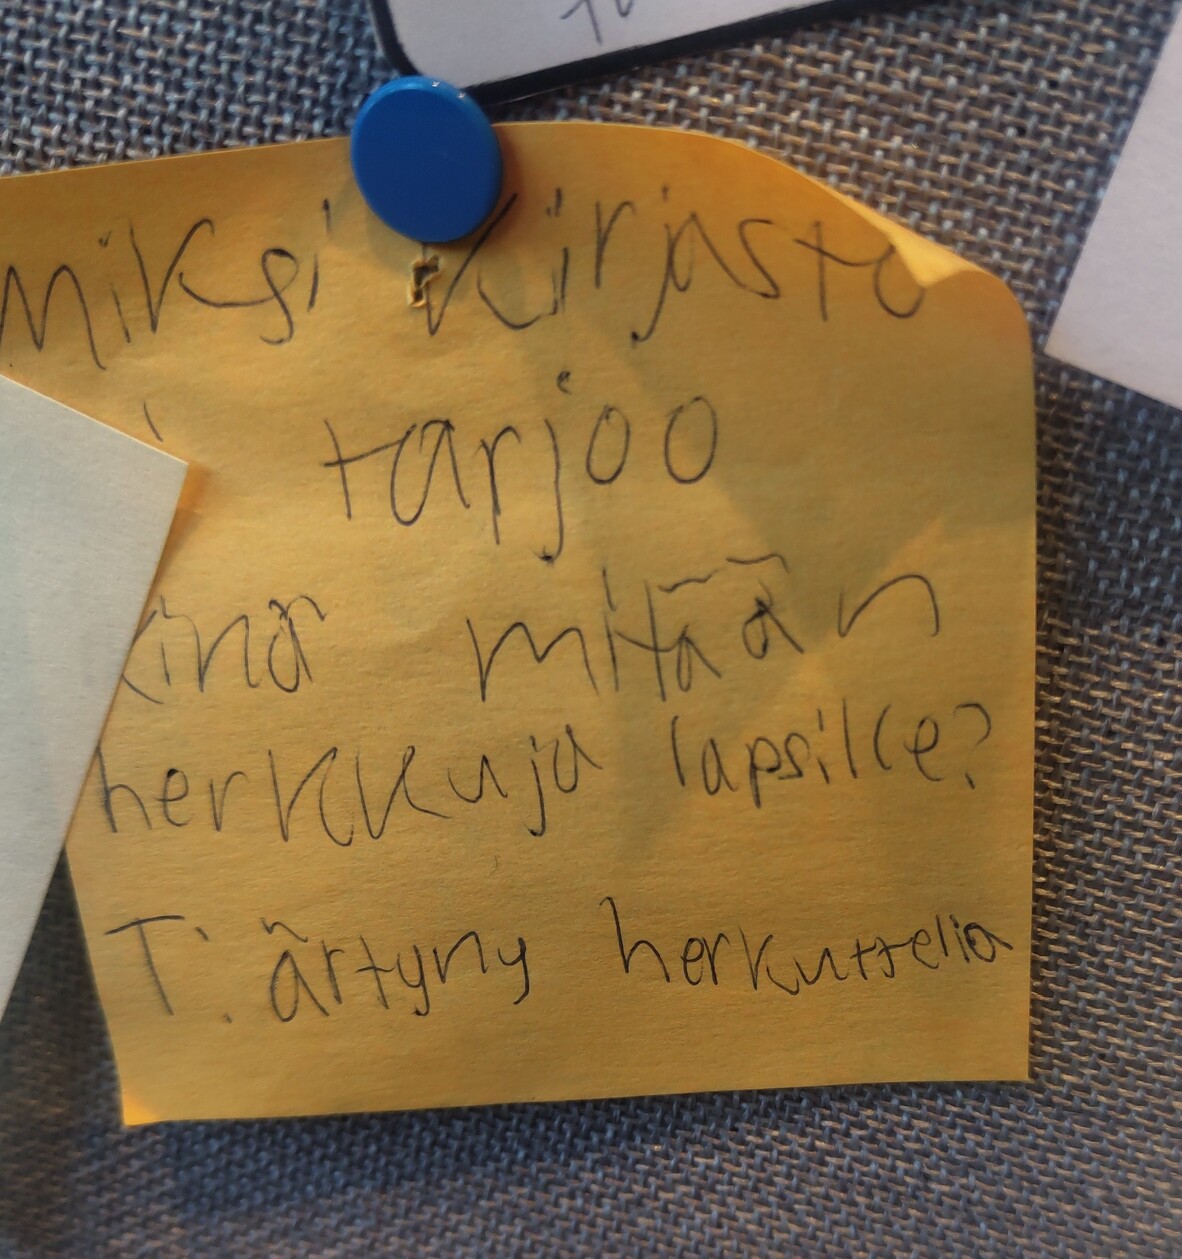 miksi kirjasto
tarjoo
mitään
herkkuja lapsille?
T. ärtyny herkuttelia